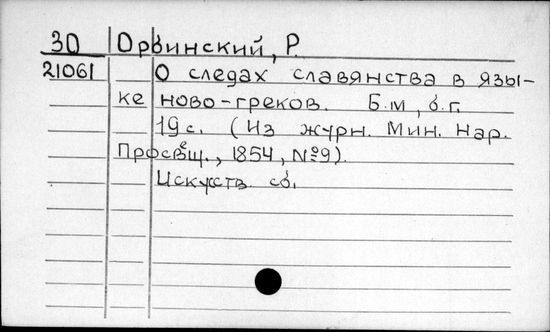 30 Орбинский, Р.
21061 О следах славянства в язы-
ке ново-греков. Б.м, б.г.
19 с. (Из журн. Мин. Нар.
Просвещ., 1854, №9).
Искусств. сб.